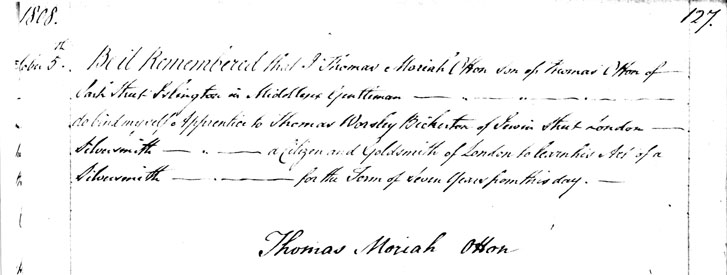 1808. 127.
October 5th. Be it Remembered that I Thomas Moriah Otton son of Thomas Otton of
Park Street Islington in Middlesex Gentleman
do bind myself Apprentice to Thomas Worsley Bickerton of Jewin Street London
Silversmith a Citizen and Goldsmith of London to learn his Art of a
Silversmith for the Term of seven Years from this day.
Thomas Moriah Otton